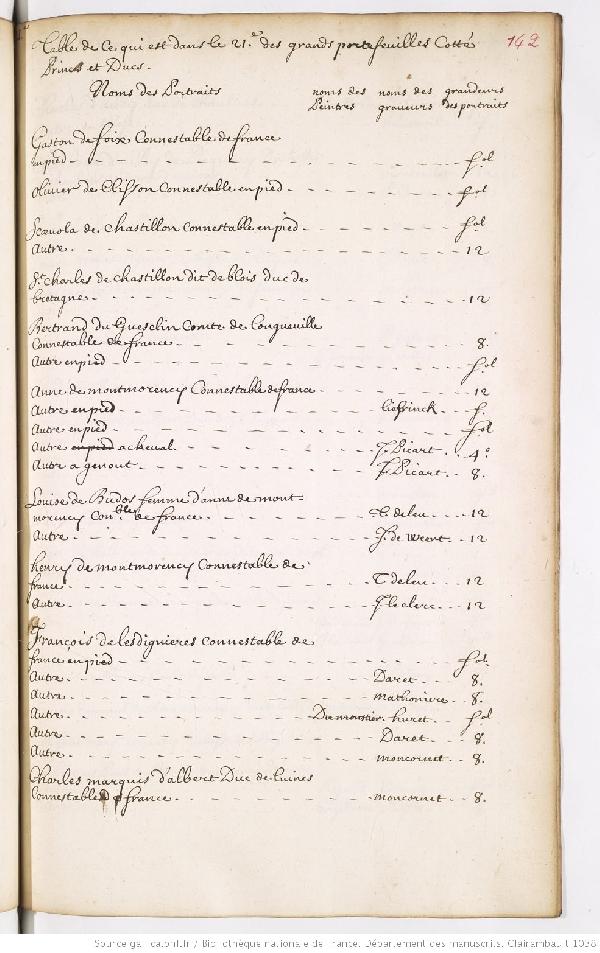 Table de ce qui est dans le 21.e des grands portefeuilles Cotté 142
Princes et Ducs.
Noms des Portraits noms des noms des grandeurs
Peintres graveurs des portraits
Gaston de foix Connestable de france
en pied - fol
olivier de Clisson Connestable en pied - fol
Scevola de Chastillon Connestable en pied - fol
Autre - 12
St. Charles de Chastillon dit de blois Duc de
bretagne - 12
Bertrand du Guesclin Comte de Longueville
Connestable de france - 8.
Autre en pied - fol
Anne de montmorency Connestable de france - 12
Autre en pied - liefrinck - f.
Autre en pied - fol
Autre en pied a cheval - J. Picart - 4o
Autre a genout - J. Picart - 8.
Louise de Budos femme d'anne de mont
morency Con.ble de france - T. de leu - 12
Autre - J. de Weert - 12
henry de montmorency Connestable de
france - T. de leu - 12
Autre - J. le clerc - 12
François de lesdignieres connestable de
france en pied - fol.
Autre - Daret - 8.
Autre - mathoniere - 8.
Autre - Dumoustier - huret - fol
Autre - Daret - 8.
Autre - moncornet - 8.
Charles marquis d'albert Duc de luines
Connestable de france - moncornet - 8.
Source gallica.bnf.fr / Bibliothèque nationale de France. Département des manuscrits. Clairambault 1038